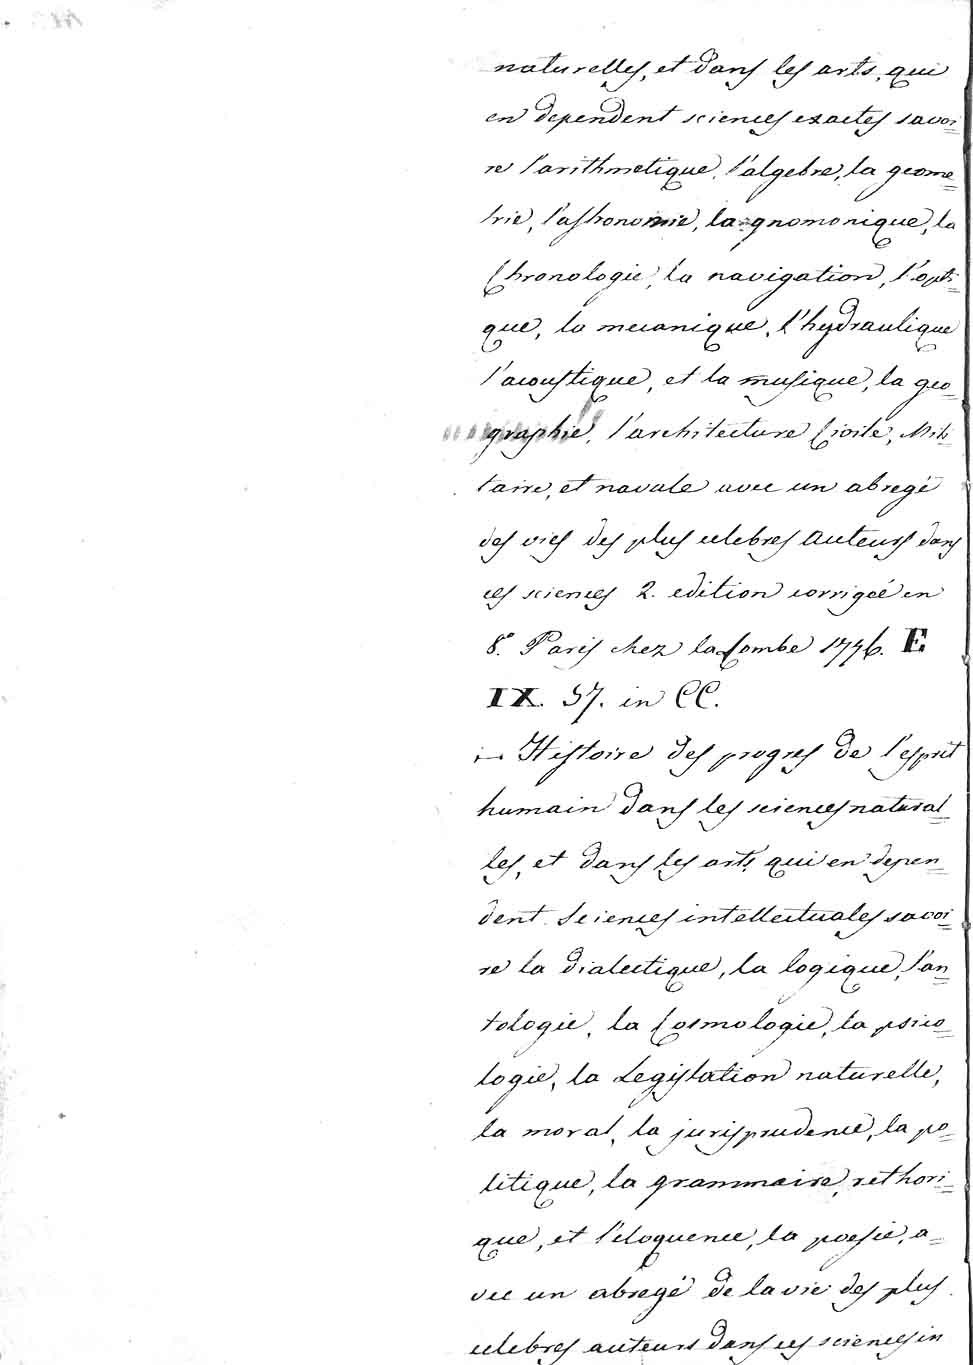 naturelles, et dans les arts, qui
en dependent sciences exactes savoi
re l'arithmetique, l'algebre, la geome=
trie, l'astronomie, la gnomonique, la
Chronologie, la navigation, l'opti=
que, la mecanique, l'hydraulique
l'acoustique, et la musique, la geo=
graphie, l'architecture Civile, Mili=
taire, et navale avec un abregé
des vies des plus celebres auteurs dans
ces sciences 2. edition corrigée en
8.° Paris chez la Combe 1776. E
IX. 57. in CC.
Histoire des progres de l'esprit
humain dans les sciences natural=
les, et dans les arts, qui en depen=
dent. Sciences intellectuales savoi=
re la dialectique, la logique, l'an=
tologie, la Cosmologie, la psico=
logie, la Legislation naturelle,
la moral, la jurisprudence, la po=
litique, la grammaire, rethori=
que, et l'eloquence, la poesie, a=
vec un abregé de la vie des plus
celebres auteurs dans ces sciences in